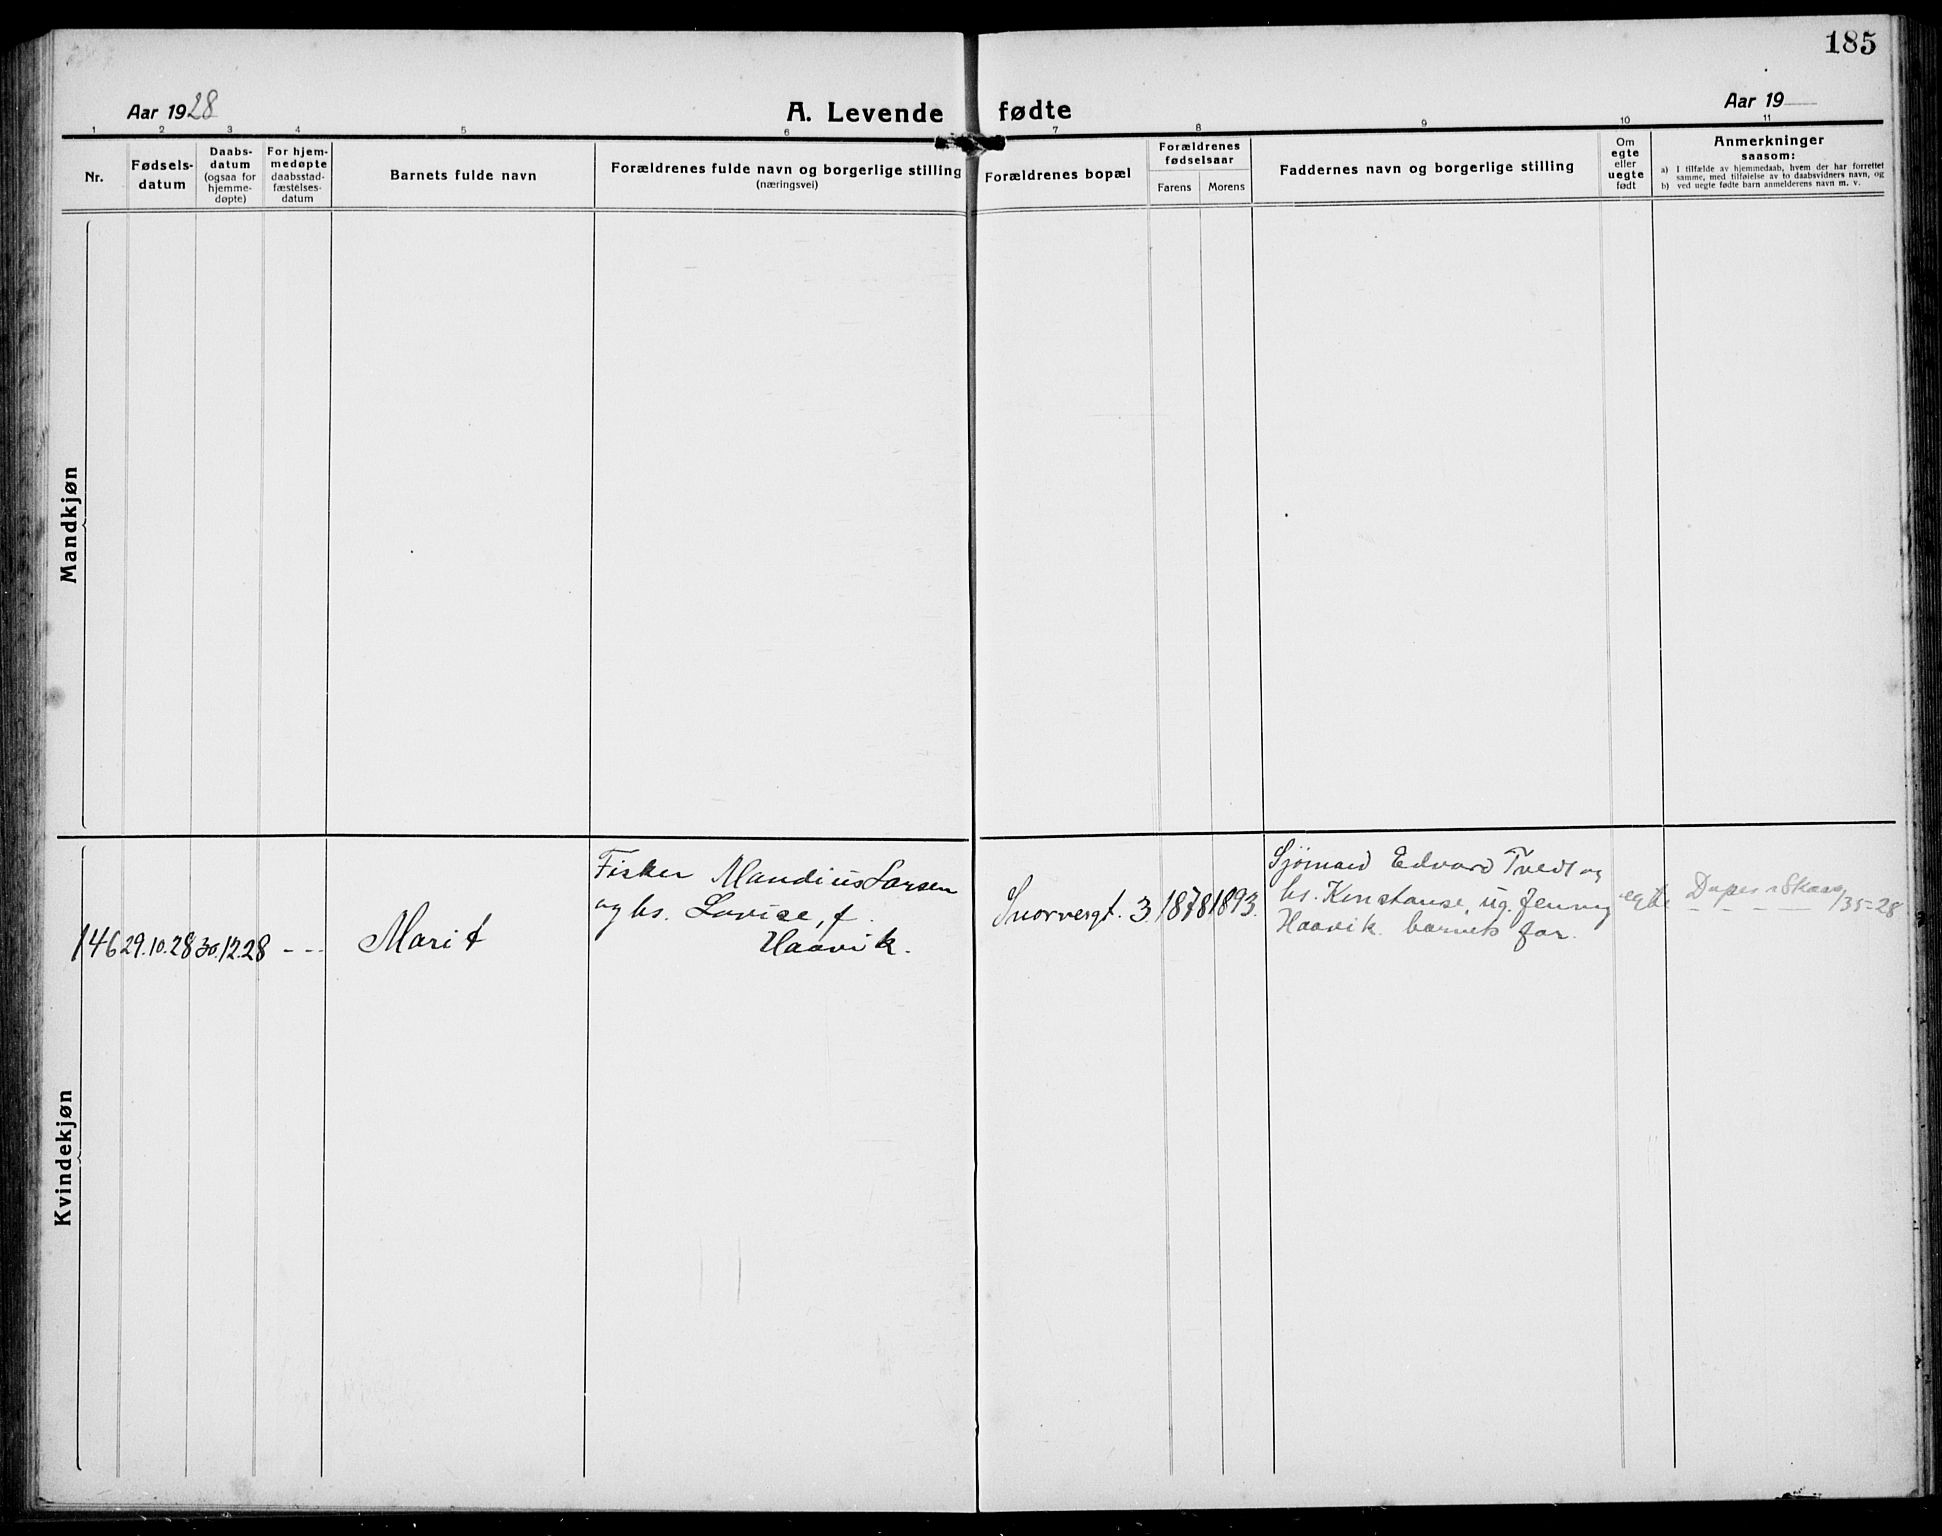 185
Aar 1928
A. Levende fødte
Aar 19
1 2 3 4 5 6 7 8 9 10 11
Nr.
Fødsels-
datum
Daabs-
datum
(ogsaa for
hjemme-
døpte)
For hjem-
medøpte
daabsstad-
fæstelses-
datum
Barnets fulde navn
Forældrenes fulde navn og borgerlige stilling
(næringsvei)
Forældrenes bopæl
Forældrenes
fødselsaar
Farens Morens
Faddernes navn og borgerlige stilling
Om
egte
eller
uegte
født
Anmerkninger
saasom:
a) I tilfælde av hjemmedaab, hvem der har forrettet
samme, med tilføielse av to daabsvidners navn, og
b) ved uegte fødte barn anmelderens navn m. v.
Mandkjøn
Kvindekjøn
146 29.10.28 30.12.28 - - -
Marit
Fisker Mandius Larsen
og hs. Lovise, f.
Haavik.
Snorresgt. 3 1878 1893.
Sjömand Edvard Tvedt og
hs. Konstanse, ug. Jenny
Haavik. barnets far.
egte
135-28